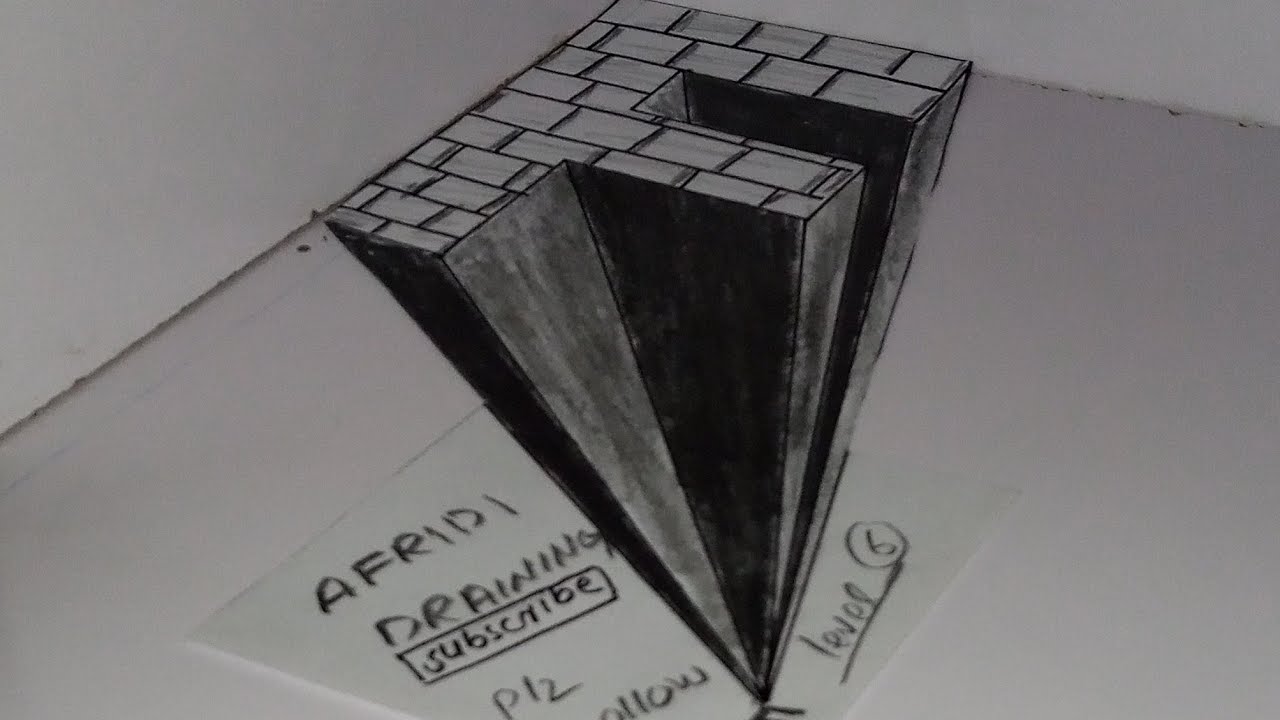 AFRIDI
DRAINING
Subscribe
plz
follow
level 6